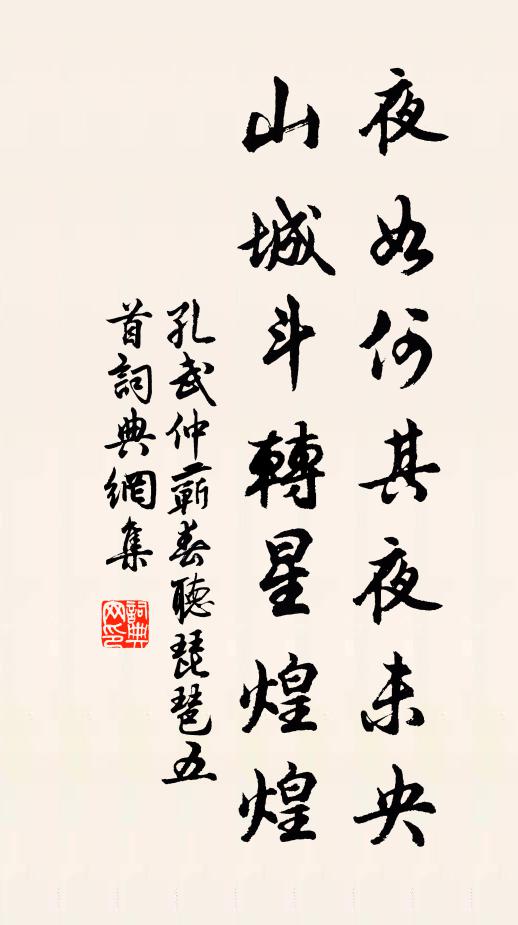 夜如何其夜未央
山城斗轉星煌煌
孔武仲蘄春聽琵琶五
首詞典網集
詞典
网印